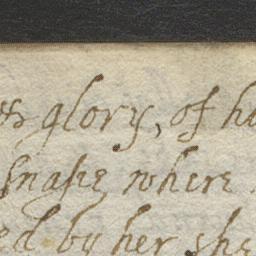 glory, of
snake where
ed by her she